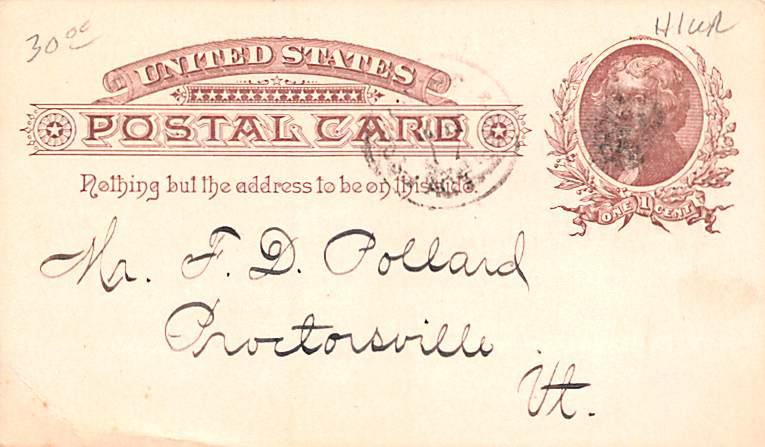 30 00
UNITED STATES
POSTAL CARD
Nothing but the address to be on this side.
ONE 1 CENT
Mr. F. D. Pollard
Proctorsville
Vt.